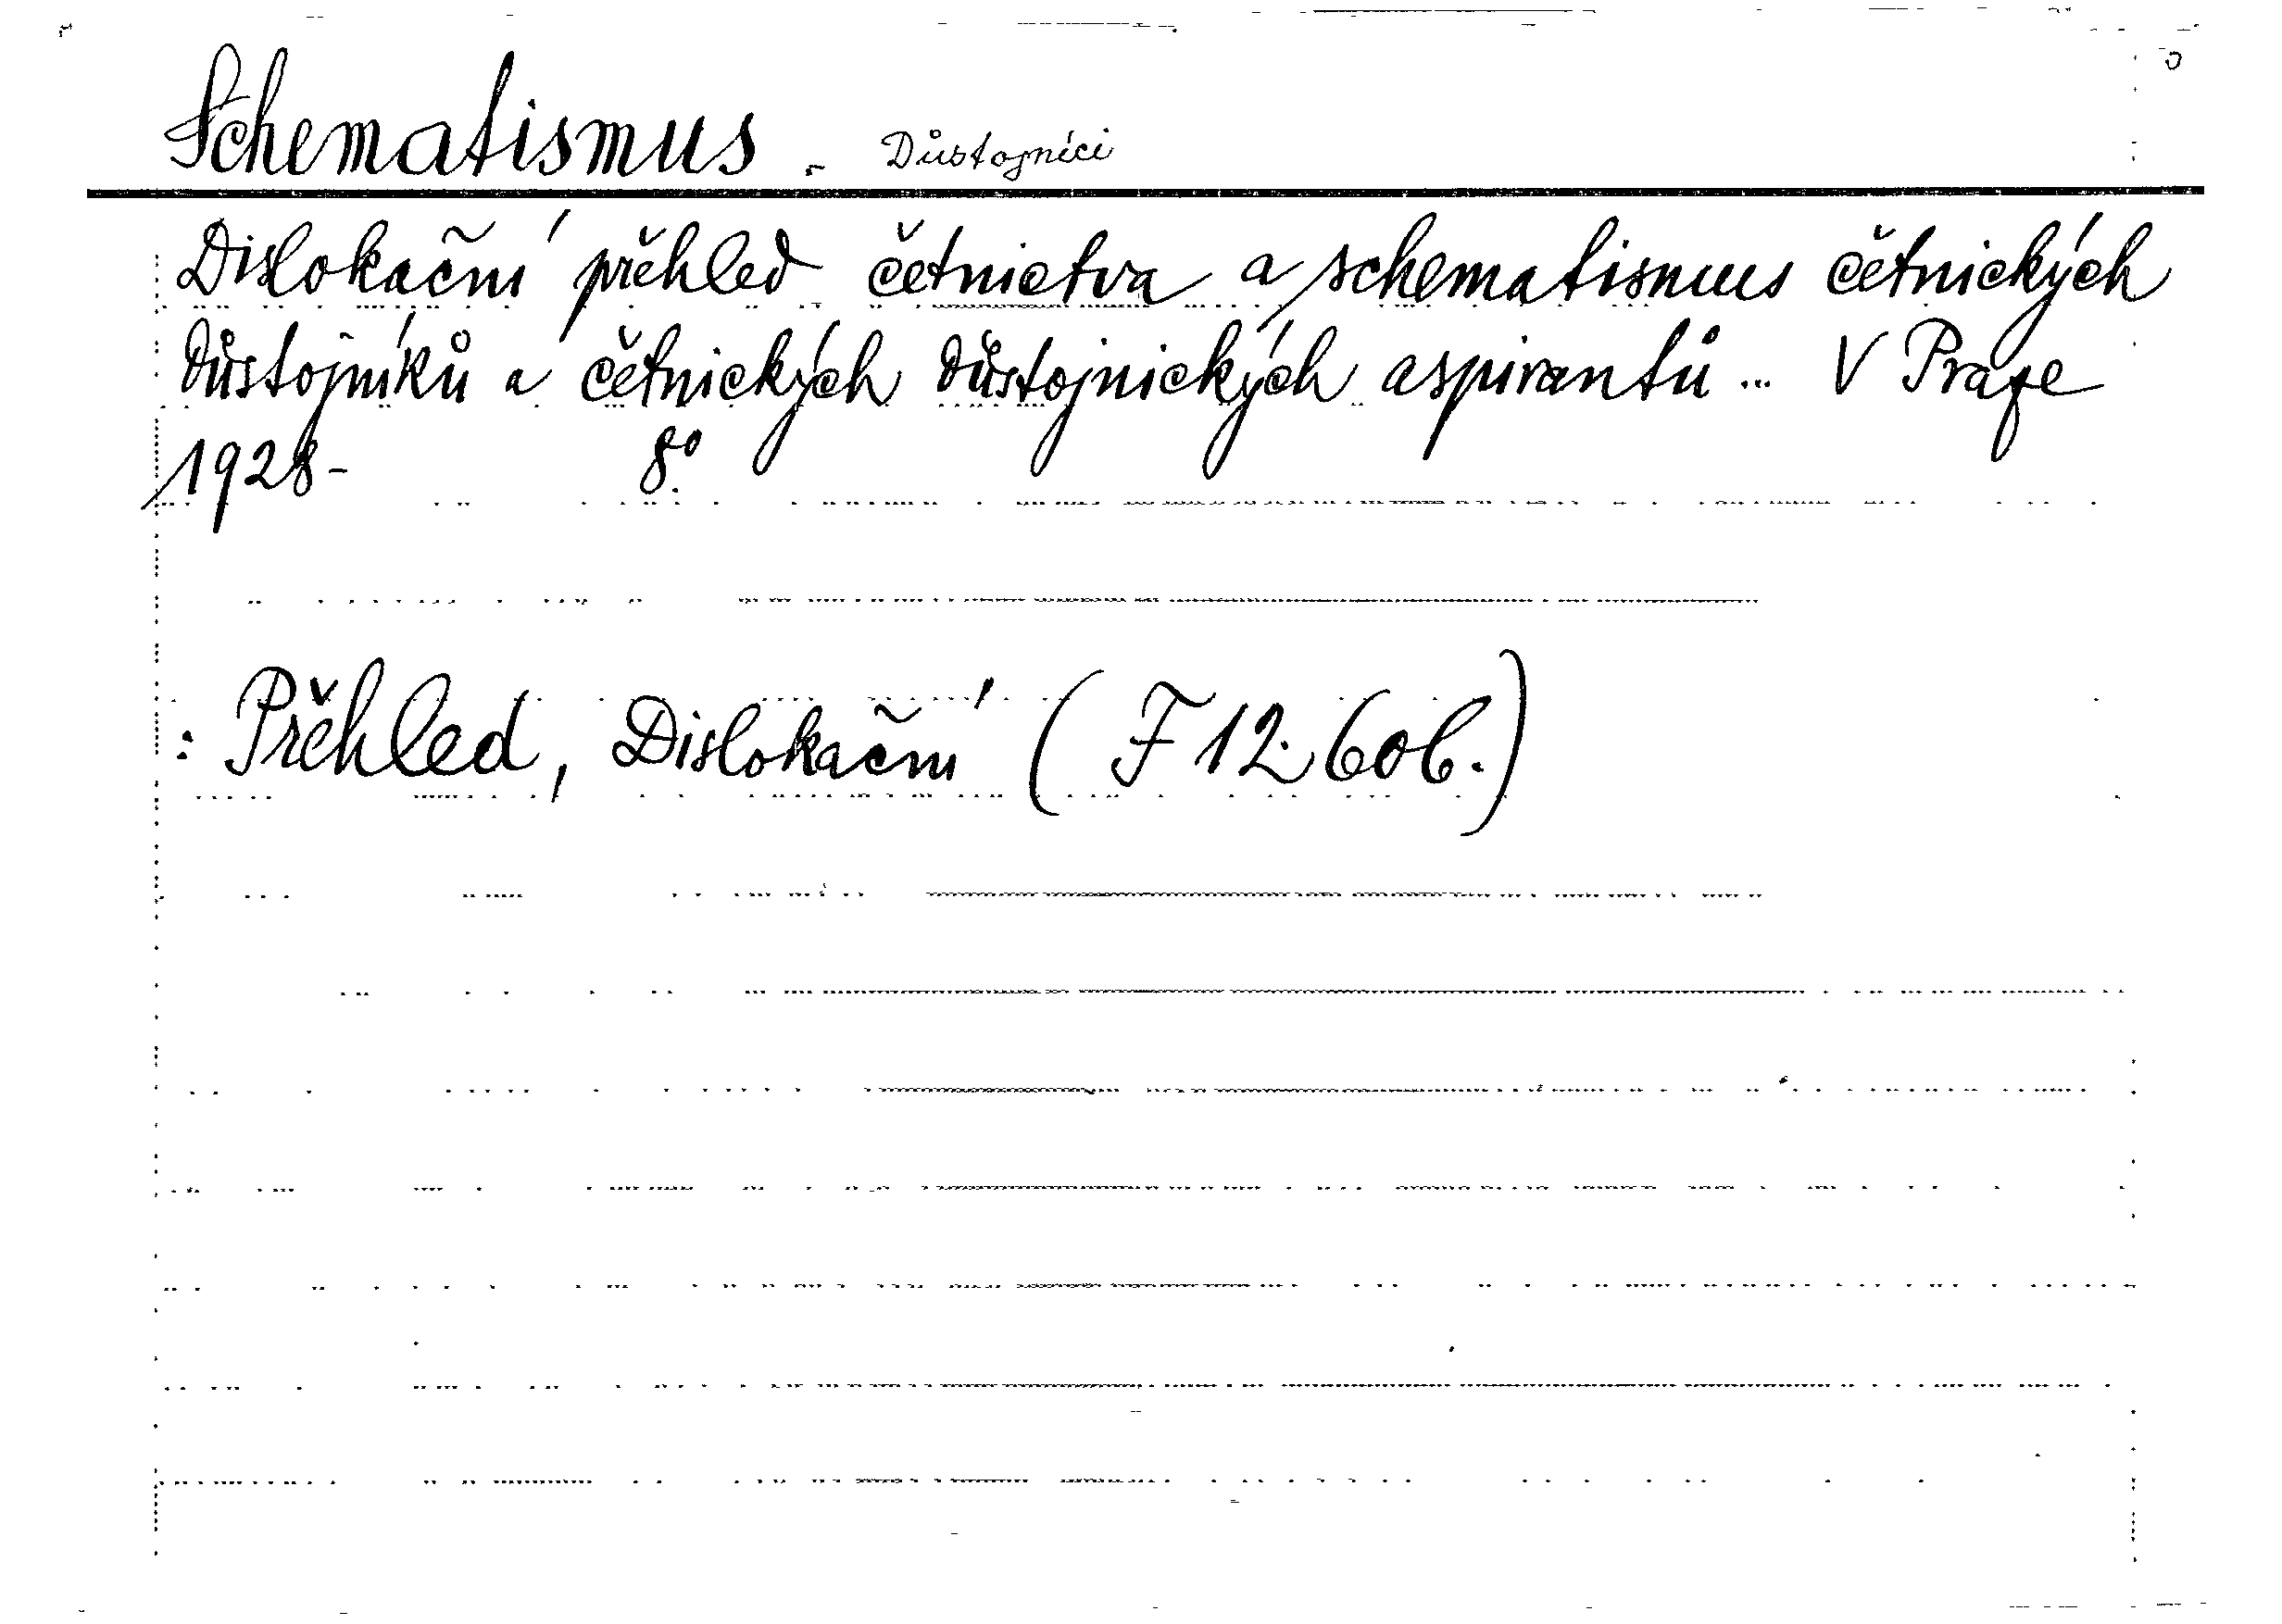 Schematismus - Důstojníci
Dislokační přehled četnictva a schematismus četnických
důstojníků a četnických důstojnických aspirantů... V Praze
1928- 8°.
: Přehled, Dislokační (F 12.60b.)